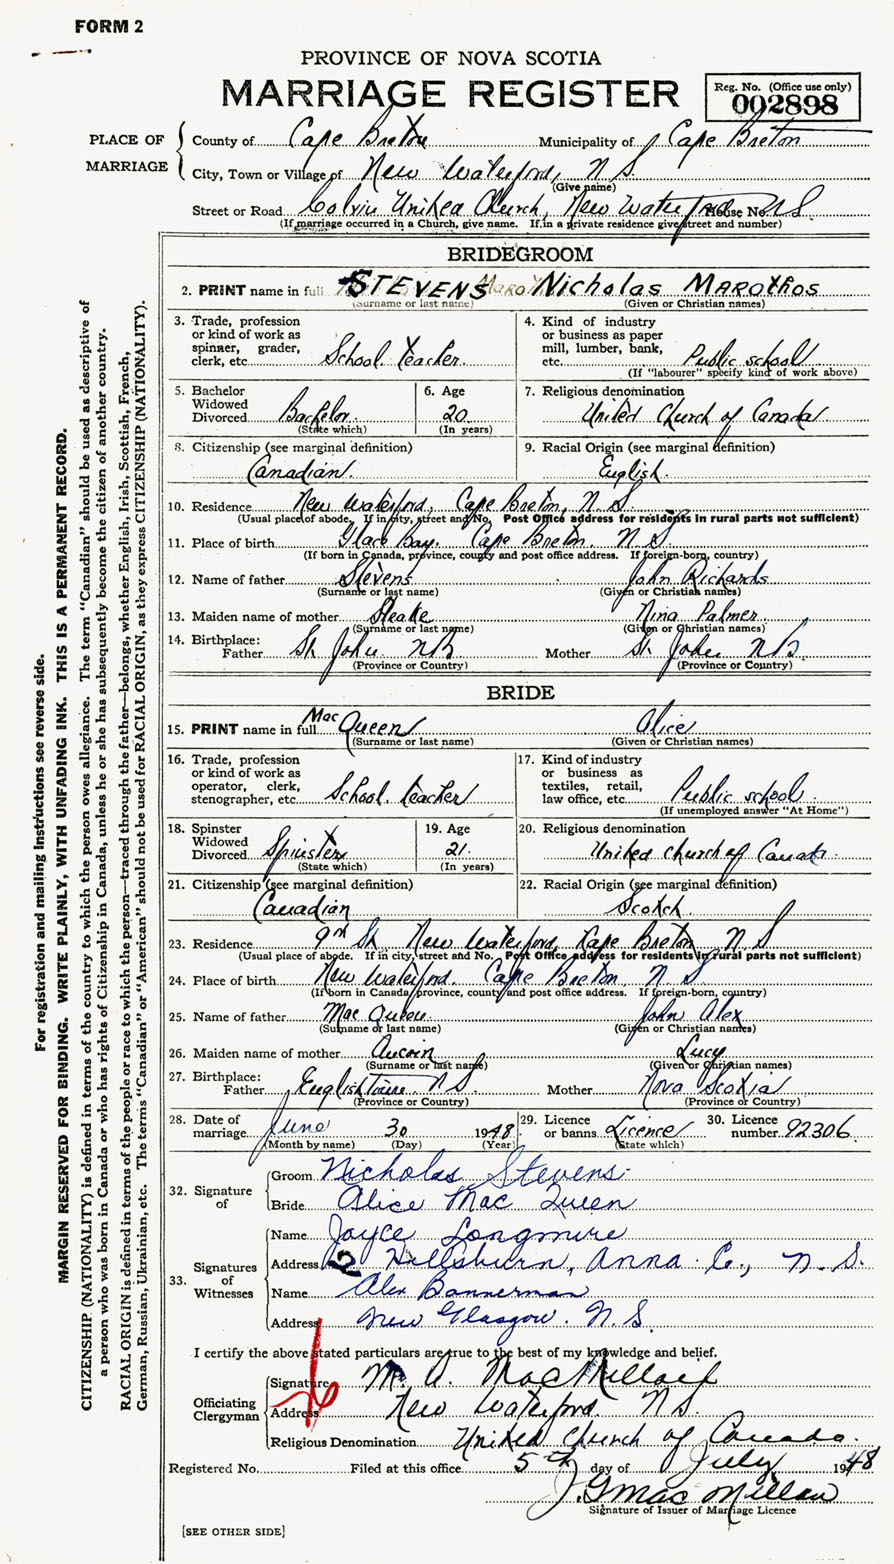 FORM 2
PROVINCE OF NOVA SCOTIA
MARRIAGE REGISTER
Reg. No. (Office use only)
002898
PLACE OF MARRIAGE
County of Cape Breton Municipality of Cape Breton
City, Town or Village of New Waterford, N S.
(Give name)
Street or Road Calvin United Church, New Waterford N S. House No.
(If marriage occurred in a Church, give name. If in a private residence give street and number)
BRIDEGROOM
2. PRINT name in full STEVENS Nicholas MAROTHOS
(Surname or last name) (Given or Christian names)
3. Trade, profession or kind of work as spinner, grader, clerk, etc. School teacher
4. Kind of industry or business as paper mill, lumber, bank, etc. Public school
(If "labourer" specify kind of work above)
5. Bachelor Widowed Divorced Bachelor (State which)
6. Age 20 (In years)
7. Religious denomination United Church of Canada
8. Citizenship (see marginal definition) Canadian
9. Racial Origin (see marginal definition) English
10. Residence New Waterford, Cape Breton, N S.
(Usual place of abode. If in city, street and No. Post Office address for residents in rural parts not sufficient)
11. Place of birth Glace Bay. Cape Breton. N S
(If born in Canada, province, county and post office address. If foreign-born, country)
12. Name of father Stevens John Richards
(Surname or last name) (Given or Christian names)
13. Maiden name of mother Nina Palmer
(Surname or last name) (Given or Christian names)
14. Birthplace:
Father St John NB Mother St John NB
(Province or Country) (Province or Country)
BRIDE
15. PRINT name in full MacQueen Alice
(Surname or last name) (Given or Christian names)
16. Trade, profession or kind of work as operator, clerk, stenographer, etc. School teacher
17. Kind of industry or business as textiles, retail, law office, etc. Public school
(If unemployed answer "At Home")
18. Spinster Widowed Divorced Spinster (State which)
19. Age 21. (In years)
20. Religious denomination United Church of Canada
21. Citizenship (see marginal definition) Canadian
22. Racial Origin (see marginal definition) Scotch
23. Residence 9th St. New Waterford, Cape Breton N S
(Usual place of abode. If in city, street and No. Post Office address for residents in rural parts not sufficient)
24. Place of birth New Waterford. Cape Breton N S
(If born in Canada, province, county and post office address. If foreign-born, country)
25. Name of father MacQueen John Alex
(Surname or last name) (Given or Christian names)
26. Maiden name of mother Aucoin Lucy
(Surname or last name) (Given or Christian names)
27. Birthplace:
Father Englishtown. N S. Mother Nova Scotia
(Province or Country) (Province or Country)
28. Date of marriage June 30 1948
(Month by name) (Day) (Year)
29. Licence or banns Licence (State which)
30. Licence number 92306
32. Signature of
Groom Nicholas Stevens
Bride Alice MacQueen
33. Signatures of Witnesses
Name Joyce Longmire
Address Hillsburn, Anna. Co., N. S.
Name Alex Bannerman
Address New Glasgow. N. S.
I certify the above stated particulars are true to the best of my knowledge and belief.
Officiating Clergyman
Signature M. A. MacMillan
Address New Waterford N S.
Religious Denomination United Church of Canada.
Registered No. Filed at this office 5th day of July 1948
J. G MacMillan
Signature of Issuer of Marriage Licence
[SEE OTHER SIDE]
For registration and mailing instructions see reverse side.
MARGIN RESERVED FOR BINDING. WRITE PLAINLY, WITH UNFADING INK. THIS IS A PERMANENT RECORD.
CITIZENSHIP (NATIONALITY) is defined in terms of the country to which the person owes allegiance. The term "Canadian" should be used as descriptive of
a person who was born in Canada or who has rights of Citizenship in Canada, unless he or she has subsequently become the citizen of another country.
RACIAL ORIGIN is defined in terms of the people or race to which the person—traced through the father—belongs, whether English, Irish, Scottish, French,
German, Russian, Ukrainian, etc. The terms "Canadian" or "American" should not be used for RACIAL ORIGIN, as they express CITIZENSHIP (NATIONALITY).